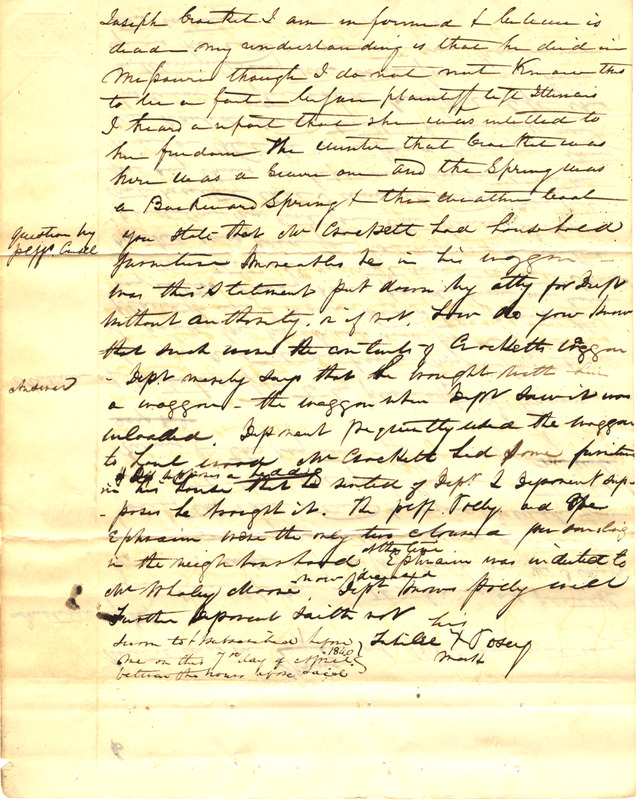 Joseph Crocket I am informed & believe is
dead my understanding is that he died in
Missouri though I do not Know this
to be a fact — before plaintiff left Illinois
I heard a report that she was intitled to
her freedom The winter that Crocket was
here was a severe one and the Spring was
a Backward Spring & the weather bad
Question by
plffs Counsel
you state that Mr Crockett had household
furniture moveables &c in his waggon —
was this statement put down by atty for Deft
without authority, or if not, how do you know
that such were the contents of Crocketts waggon
Answer
- Dept merely says that he brought with him
a waggon — the waggon when Dept saw it was
unloaded. Deponent frequently used the waggon
to haul wood Mr Crockett had some furniture
& Dept supposes a bedding
in his house that he rented of Dept & Deponent sup-
- poses he brought it. The plff. Polly and
Ephraim were the only two coloured persons living
in the neighbourhood at the time Ephraim was indented to
Mr Whaley Moore now deceased Dept knows Polly well
Further deponent saith not
Sworn to & subscribed before
me on this 7th day of April 1840
between the hours aforesaid
his
X Posey
mark